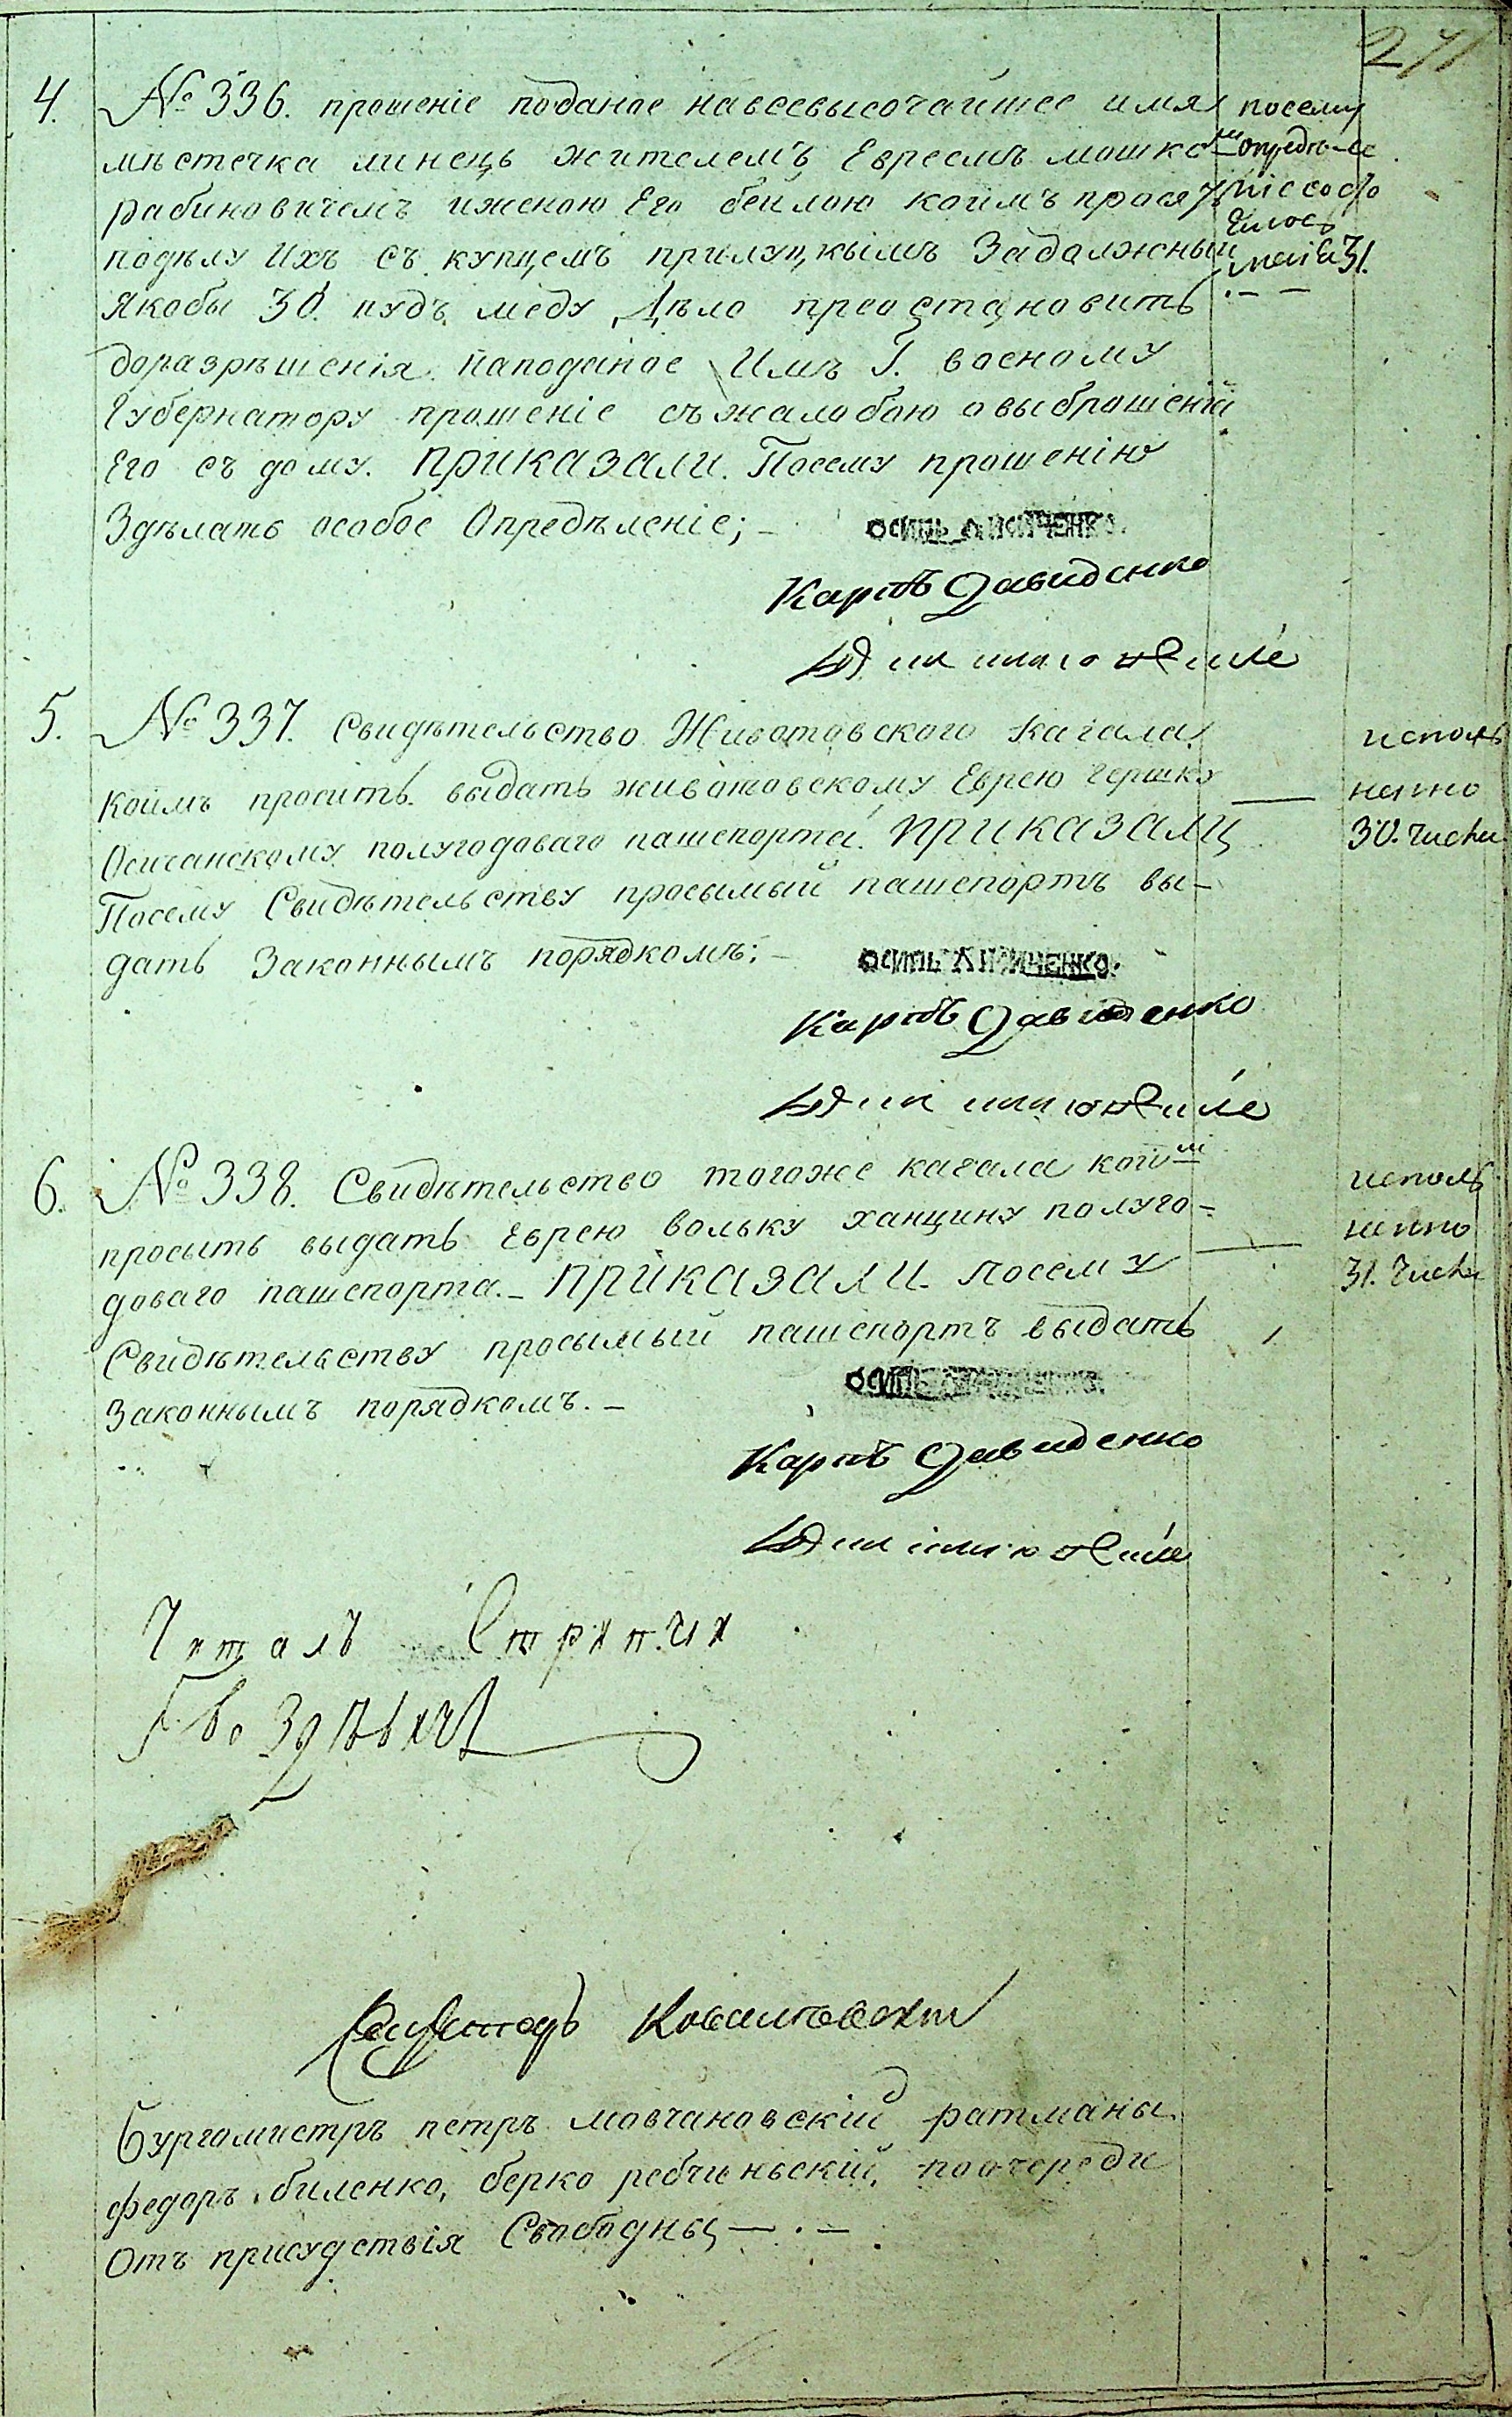 271
4. № 336. прошеніе поданое навсевысочайшее имя
мѣстечка линецъ жителемъ Евреемъ мошкомъ
рабиновичемъ иженою Его беилою коимъ прося
подѣлу Ихъ съ купцемъ прилуцкымъ Задолжный
якобы 30. пудъ меду Дѣло преостановить
доразрѣшенія наподаное Имъ Г. военому
Губернатору прошеніе съжалобою овыброшеніи
Его съ дому. приказали. Посему прошенію
Здѣлать особое Опредѣленіе;
посему
опредѣле
ніе состо
ялось
маія 31.
осипъ лисиченко.
Карпъ Давиденко
5. № 337. Свидѣтельство Животовского кагала
коимъ просить выдать животовскому Еврею гершку
Осичанскому полугодоваго пашепорта. приказали
Посему Свидѣтельству просымый пашепортъ вы-
дать Законнымъ порядкомъ;
исполь
ненно
30. числа
осипъ лисиченко.
Карпъ Давиденко
6. № 338. Свидѣтельство тогоже кагала коимъ
просить выдать Еврею волькy ханцину полуго-
доваго пашепорта. приказали. посему
Свидѣтельству просымый пашепортъ выдать
Законнымъ порядкомъ.
исполь
ненно
31. числа
осипъ лисиченко.
Карпъ Давиденко
Читалъ Стряпчи
Гвоздѣвичъ
Ковалевскій
Бургомистръ петръ мовчановскій ратманы
федоръ биленко, берко ребчиньскій, поочереди
Отъ присудствія Свободны